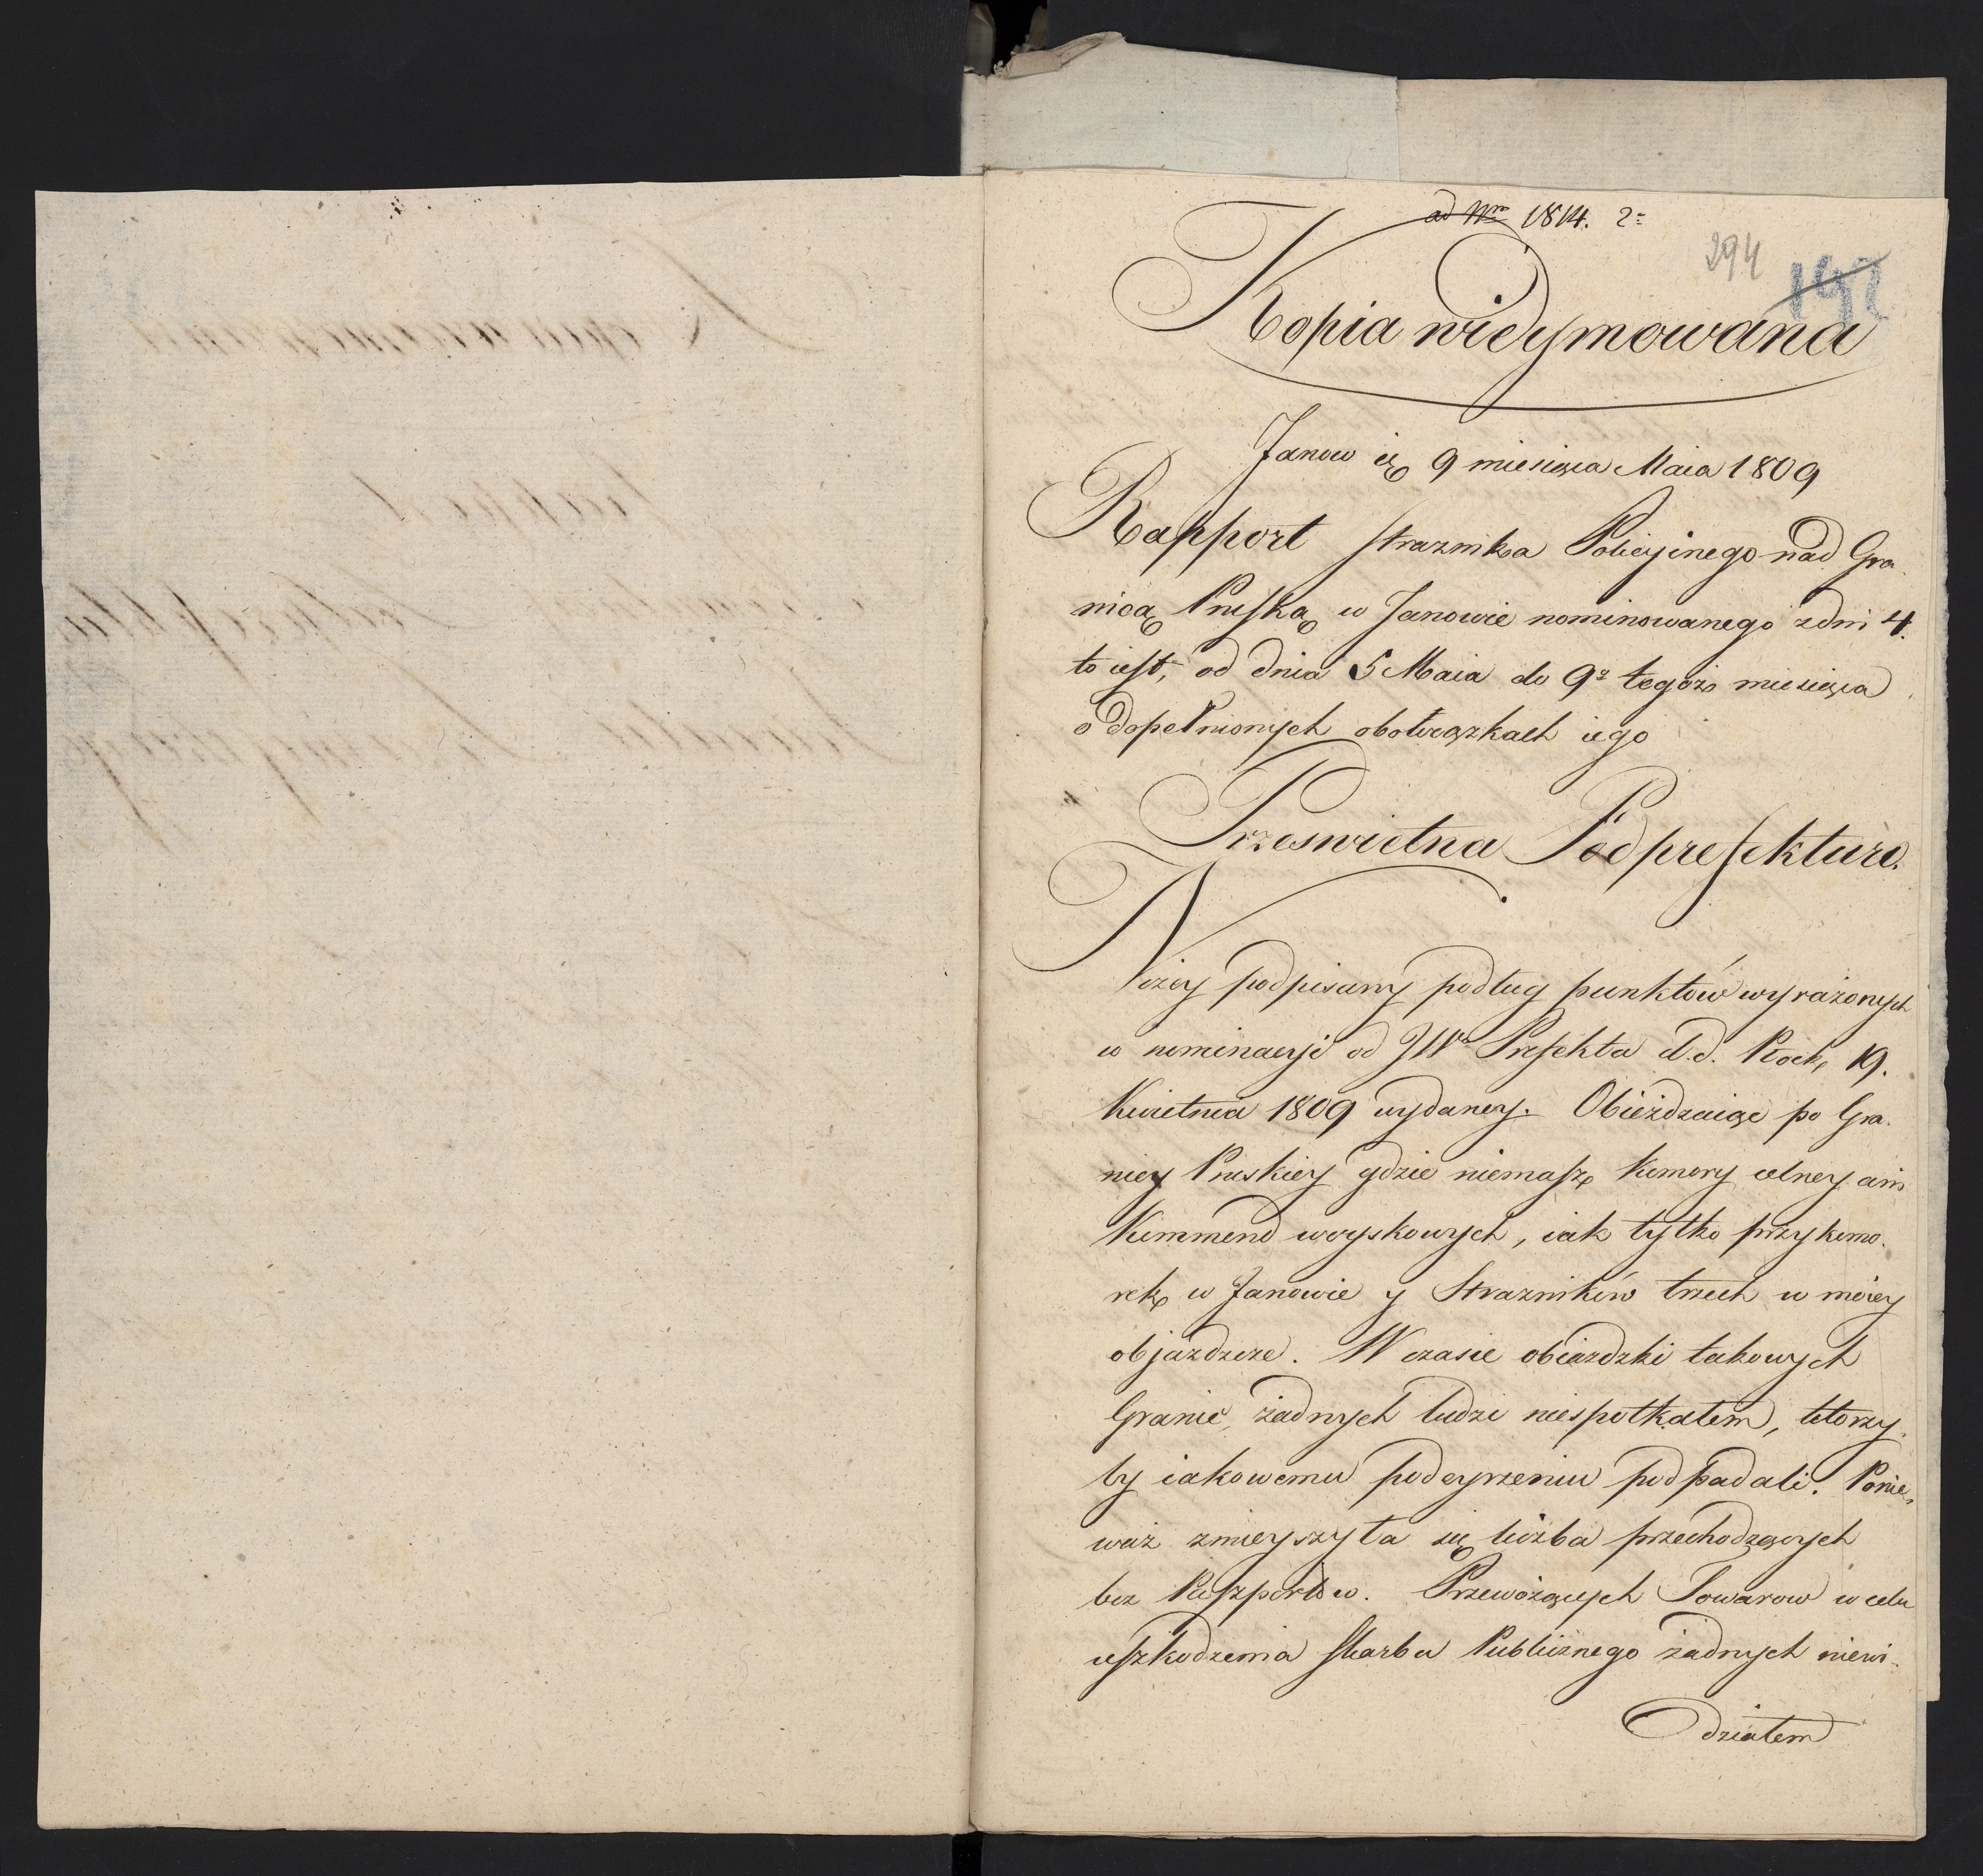 ad Nro 1814. 2=
294
192
Kopia widymowana
Janow d. 9 miesiąca Maia 1809
Rapport strażnika Policyjnego nad Gra-
nicą Pruską w Janowie nominowanego z dni 4.
to iest, od dnia 5 Maia do 9o tegoż miesiąca
o dopełnionych obowiązkach iego
Przeswietna Podprefekturo.
Niżey podpisany podług punktów wyrażonych
w nominacyi od JW Prefekta d.d. Płock, 19.
Kwietnia 1809 wydaney. Obieżdzaiąc po Gra-
nicy Pruskiey gdzie niemasz Komory celney ani
Kommend woyskowych, iak tylko przykomo-
rek w Janowie y Strazników trzech w moiey
objazdzce. W czasie obiazdzki takowych
Granic, żadnych ludzi niespotkałem, którzy
by iakowemu podeyrzeniu podpadali. Ponie-
waż zmieyszyła się liczba przechodzących
bez Paszportów. Przewożących Towarow w celu
uszkodzenia skarbu Publicznego żadnych niewi-
działem